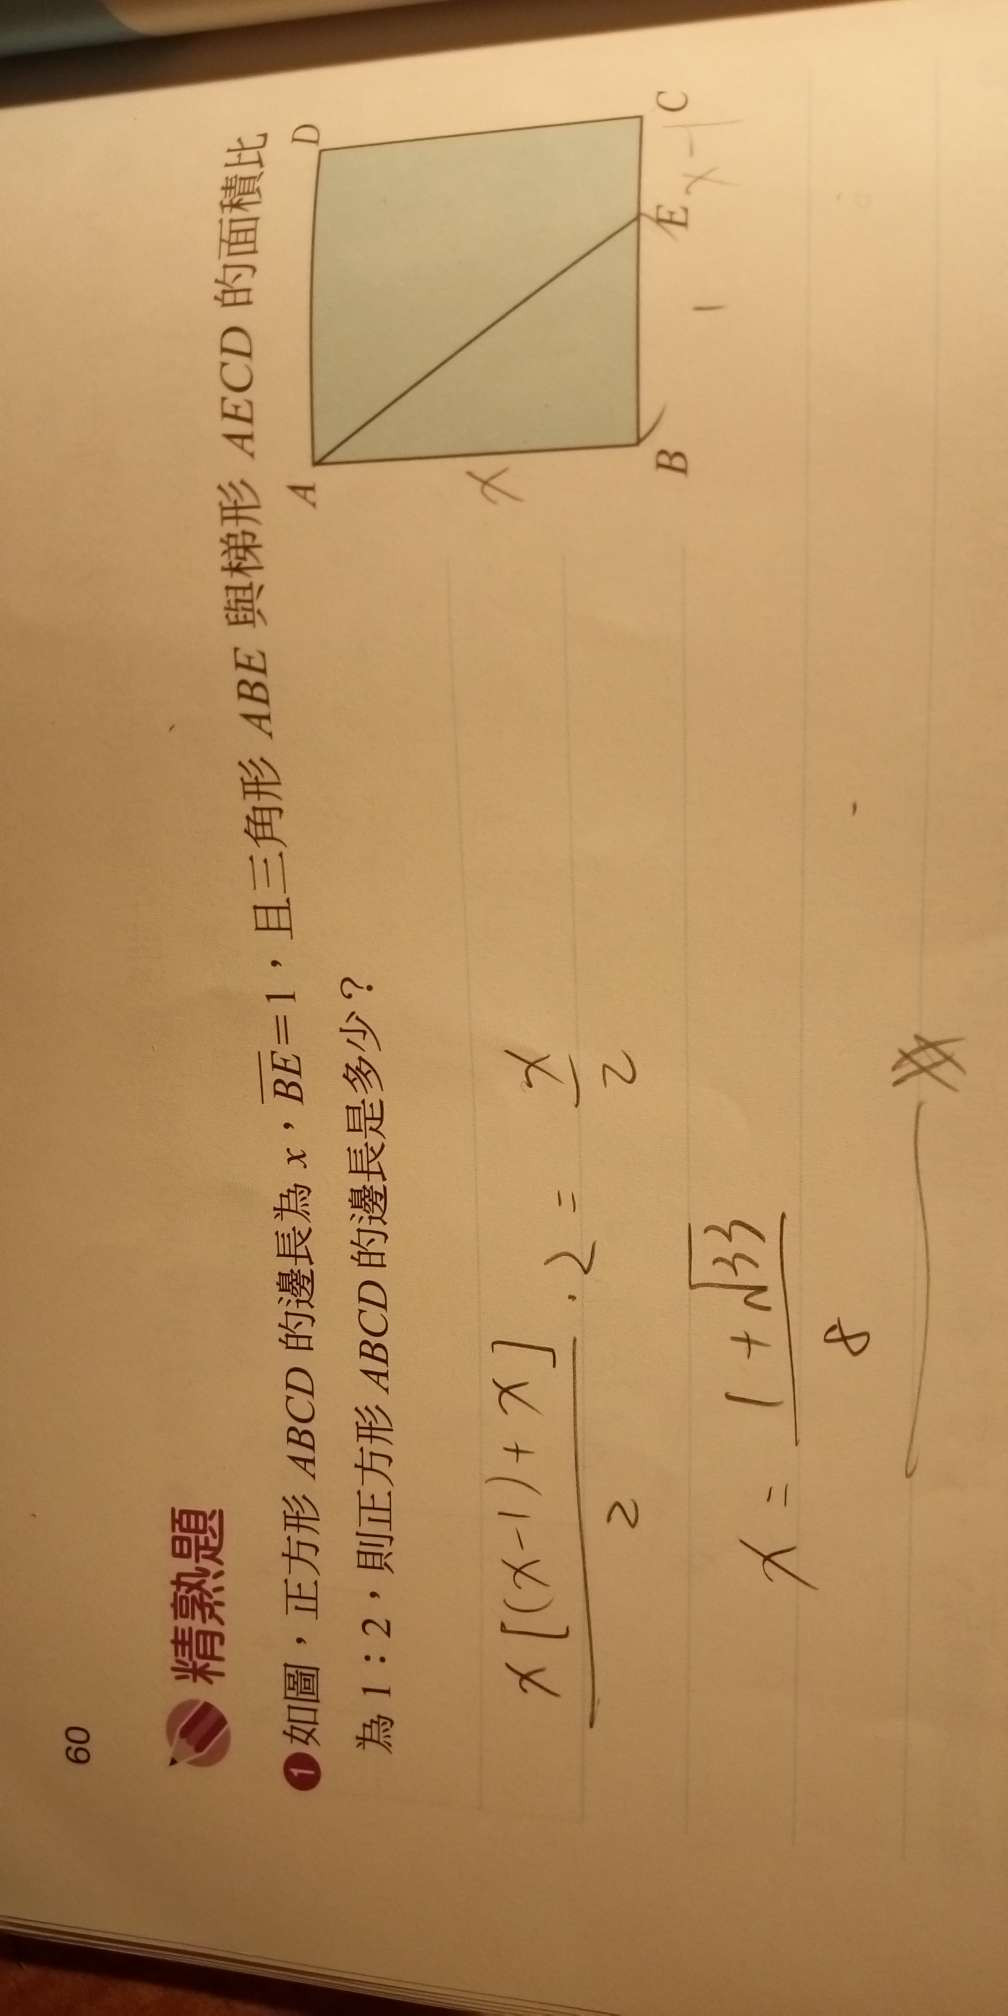 60
精熟題
1 如圖，正方形 ABCD 的邊長為 x，BE=1，且三角形 ABE 與梯形 AECD 的面積比
為 1：2，則正方形 ABCD 的邊長是多少？
A D
x
B E C
1 x-1
x[(x-1)+x]/2 · 2 = x/2
x = (1+√33)/8